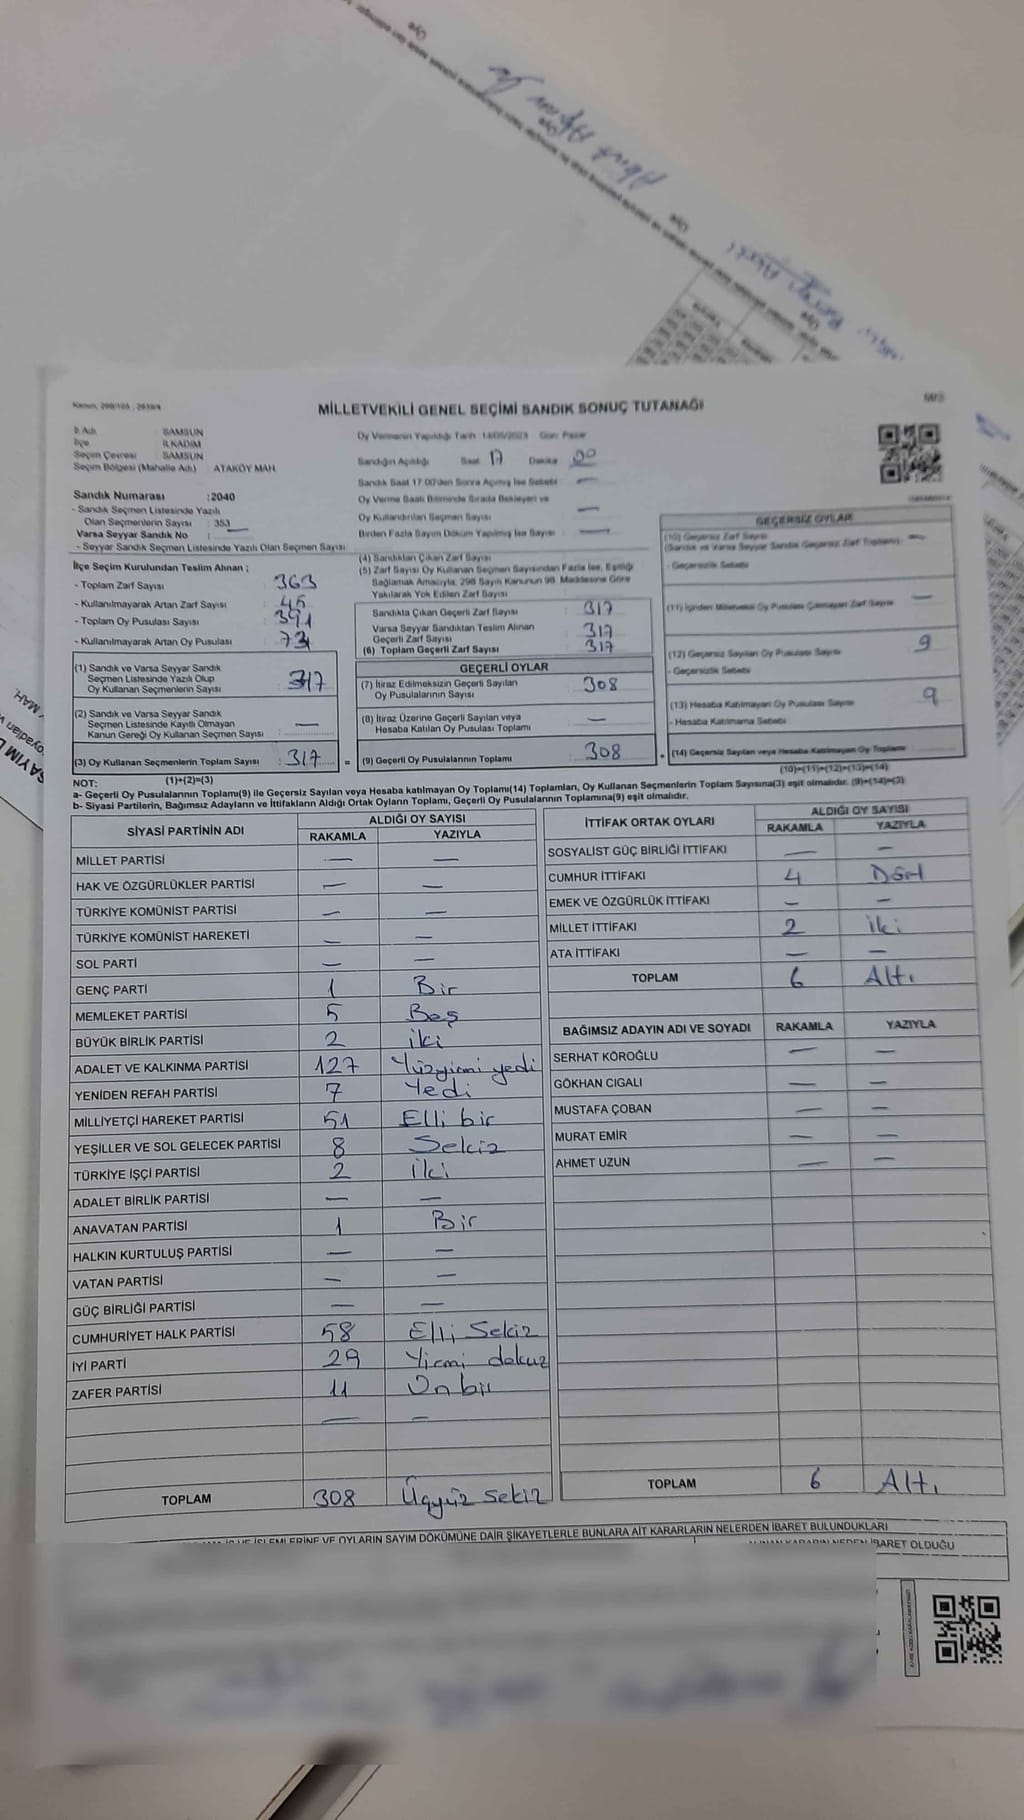 Kanun, 298/105 ; 2839/4
MİLLETVEKİLİ GENEL SEÇİMİ SANDIK SONUÇ TUTANAĞI
İl Adı : SAMSUN
İlçe : İLKADIM
Seçim Çevresi : SAMSUN
Seçim Bölgesi (Mahalle Adı) : ATAKÖY MAH.
Sandık Numarası :2040
- Sandık Seçmen Listesinde Yazılı
Olan Seçmenlerin Sayısı : 353
Varsa Seyyar Sandık No : —
- Seyyar Sandık Seçmen Listesinde Yazılı Olan Seçmen Sayısı
Oy Vermenin Yapıldığı Tarih :14/05/2023 Gün: Pazar
Sandığın Açıldığı Saat 17 Dakika 00
Sandık Saat 17.00'den Sonra Açılmış İse Sebebi : —
Oy Verme Saati Bitiminde Sırada Bekleyen ve
Oy Kullandırılan Seçmen Sayısı : —
Birden Fazla Sayım Döküm Yapılmış İse Sayısı : —
İlçe Seçim Kurulundan Teslim Alınan ;
- Toplam Zarf Sayısı : 363
- Kullanılmayarak Artan Zarf Sayısı : 46
- Toplam Oy Pusulası Sayısı : 391
- Kullanılmayarak Artan Oy Pusulası : 74
(1) Sandık ve Varsa Seyyar Sandık
Seçmen Listesinde Yazılı Olup
Oy Kullanan Seçmenlerin Sayısı : 317
(2) Sandık ve Varsa Seyyar Sandık
Seçmen Listesinde Kayıtlı Olmayan
Kanun Gereği Oy Kullanan Seçmen Sayısı : —
(3) Oy Kullanan Seçmenlerin Toplam Sayısı : 317
(1)+(2)=(3)
(4) Sandıktan Çıkan Zarf Sayısı
(5) Zarf Sayısı Oy Kullanan Seçmen Sayısından Fazla İse, Eşitliği
Sağlamak Amacıyla, 298 Sayılı Kanunun 98. Maddesine Göre
Yakılarak Yok Edilen Zarf Sayısı
Sandıkta Çıkan Geçerli Zarf Sayısı : 317
Varsa Seyyar Sandıktan Teslim Alınan
Geçerli Zarf Sayısı : 317
(6) Toplam Geçerli Zarf Sayısı : 317
GEÇERLİ OYLAR
(7) İtiraz Edilmeksizin Geçerli Sayılan
Oy Pusulalarının Sayısı : 308
(8) İtiraz Üzerine Geçerli Sayılan veya
Hesaba Katılan Oy Pusulası Toplamı : —
= (9) Geçerli Oy Pusulalarının Toplamı : 308
GEÇERSİZ OYLAR
(10) Geçersiz Zarf Sayısı : —
(Sandık ve Varsa Seyyar Sandık Geçersiz Zarf Toplamı)
- Geçersizlik Sebebi
(11) İçinden Milletvekili Oy Pusulası Çıkmayan Zarf Sayısı : —
(12) Geçersiz Sayılan Oy Pusulası Sayısı : 9
- Geçersizlik Sebebi
(13) Hesaba Katılmayan Oy Pusulası Sayısı : 9
- Hesaba Katılmama Sebebi
+ (14) Geçersiz Sayılan veya Hesaba Katılmayan Oy Toplamı
(10)+(11)+(12)+(13)=(14)
NOT:
a- Geçerli Oy Pusulalarının Toplamı(9) ile Geçersiz Sayılan veya Hesaba katılmayan Oy Toplamı(14) Toplamları, Oy Kullanan Seçmenlerin Toplam Sayısına(3) eşit olmalıdır. (9)+(14)=(3)
b- Siyasi Partilerin, Bağımsız Adayların ve İttifakların Aldığı Ortak Oyların Toplamı, Geçerli Oy Pusulalarının Toplamına(9) eşit olmalıdır.
SİYASİ PARTİNİN ADI ALDIĞI OY SAYISI
RAKAMLA YAZIYLA
MİLLET PARTİSİ — —
HAK VE ÖZGÜRLÜKLER PARTİSİ — —
TÜRKİYE KOMÜNİST PARTİSİ — —
TÜRKİYE KOMÜNİST HAREKETİ — —
SOL PARTİ — —
GENÇ PARTİ 1 Bir
MEMLEKET PARTİSİ 5 Beş
BÜYÜK BİRLİK PARTİSİ 2 iki
ADALET VE KALKINMA PARTİSİ 127 Yüzyirmi yedi
YENİDEN REFAH PARTİSİ 7 Yedi
MİLLİYETÇİ HAREKET PARTİSİ 51 Elli bir
YEŞİLLER VE SOL GELECEK PARTİSİ 8 Sekiz
TÜRKİYE İŞÇİ PARTİSİ 2 iki
ADALET BİRLİK PARTİSİ — —
ANAVATAN PARTİSİ 1 Bir
HALKIN KURTULUŞ PARTİSİ — —
VATAN PARTİSİ — —
GÜÇ BİRLİĞİ PARTİSİ — —
CUMHURİYET HALK PARTİSİ 58 Elli Sekiz
İYİ PARTİ 29 Yirmi dokuz
ZAFER PARTİSİ 11 Onbir
— —
TOPLAM 308 Üçyüz sekiz
İTTİFAK ORTAK OYLARI ALDIĞI OY SAYISI
RAKAMLA YAZIYLA
SOSYALİST GÜÇ BİRLİĞİ İTTİFAKI — —
CUMHUR İTTİFAKI 4 Dört
EMEK VE ÖZGÜRLÜK İTTİFAKI — —
MİLLET İTTİFAKI 2 iki
ATA İTTİFAKI — —
TOPLAM 6 Altı
BAĞIMSIZ ADAYIN ADI VE SOYADI RAKAMLA YAZIYLA
SERHAT KÖROĞLU — —
GÖKHAN CIGALI — —
MUSTAFA ÇOBAN — —
MURAT EMİR — —
AHMET UZUN — —
TOPLAM 6 Altı
İŞLEMLERİNE VE OYLARIN SAYIM DÖKÜMÜNE DAİR ŞİKAYETLERLE BUNLARA AİT KARARLARIN NELERDEN İBARET BULUNDUKLARI
ALINAN KARARIN NEDEN İBARET OLDUĞU